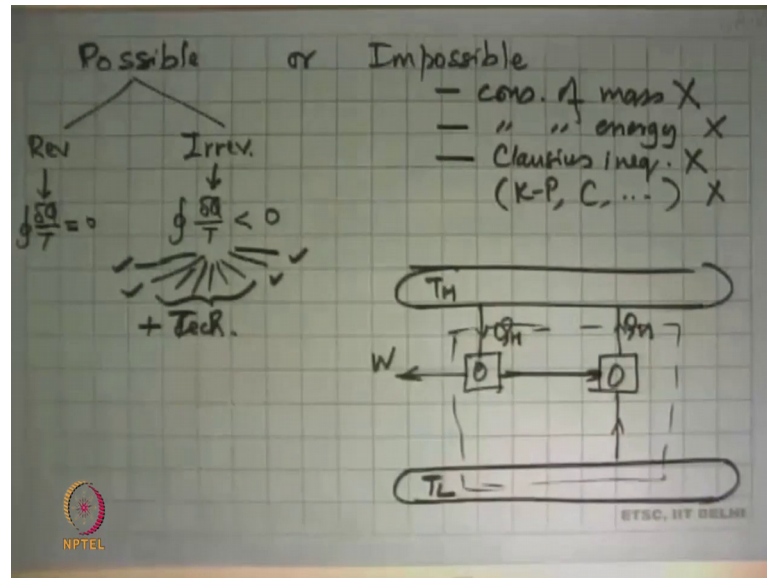 Possible or Impossible
– cons. of mass X
– " " energy X
– Clausius ineq. X
(K-P, C, ...) X
Rev Irrev.
∮ δQ/T = 0 ∮ δQ/T < 0
+ Tech.
T_H
Q_H Q_H
W
T_L
ETSC, IIT DELHI
NPTEL